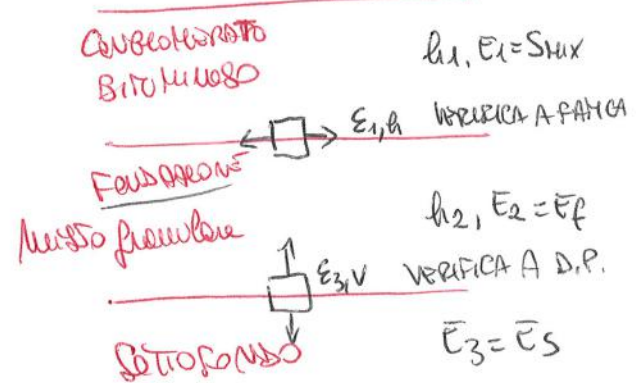 CONGLOMERATO
BITUMINOSO
h1, E1=Smix
ε1,h VERIFICA A FATICA
FONDAZIONE
Misto granulare
h2, E2=Ef
ε3,v VERIFICA A D.P.
SOTTOFONDO
E3=Es